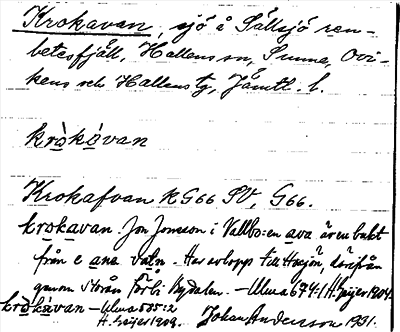 Krokavan, sjö å Sällsjö ren-
betesfjäll, Hallens sn, Sunne, Ovi-
kens och Hallens tg, Jämtl. l.
kròkávan
Krokafvan KG66 SV, G66.
krokavan Jon Jonsson i Vallbo: en ava är en bukt
från e ane valn. Har avlopp till Håsjön, därifrån
genom Strån förbi Nydalen. – Ulma 674:1 H. Geijer 1904.
kròkávan – Ulma 555:2
H. Geijer 1909. Johan Anderson 1931.